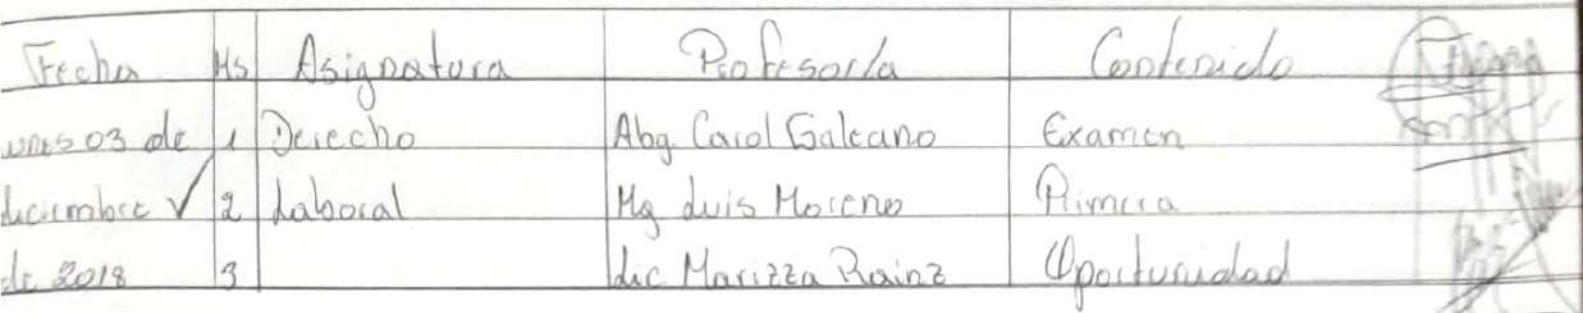 Fecha Hs Asignatura Profesor/a Contenido Firma
unes 03 de 1 Derecho Abg. Carol Galeano Examen
diciembre ✓ 2 Laboral Mg Luis Moreno Primera
de 2018 3 Lic Marizza Rainz Oportunidad